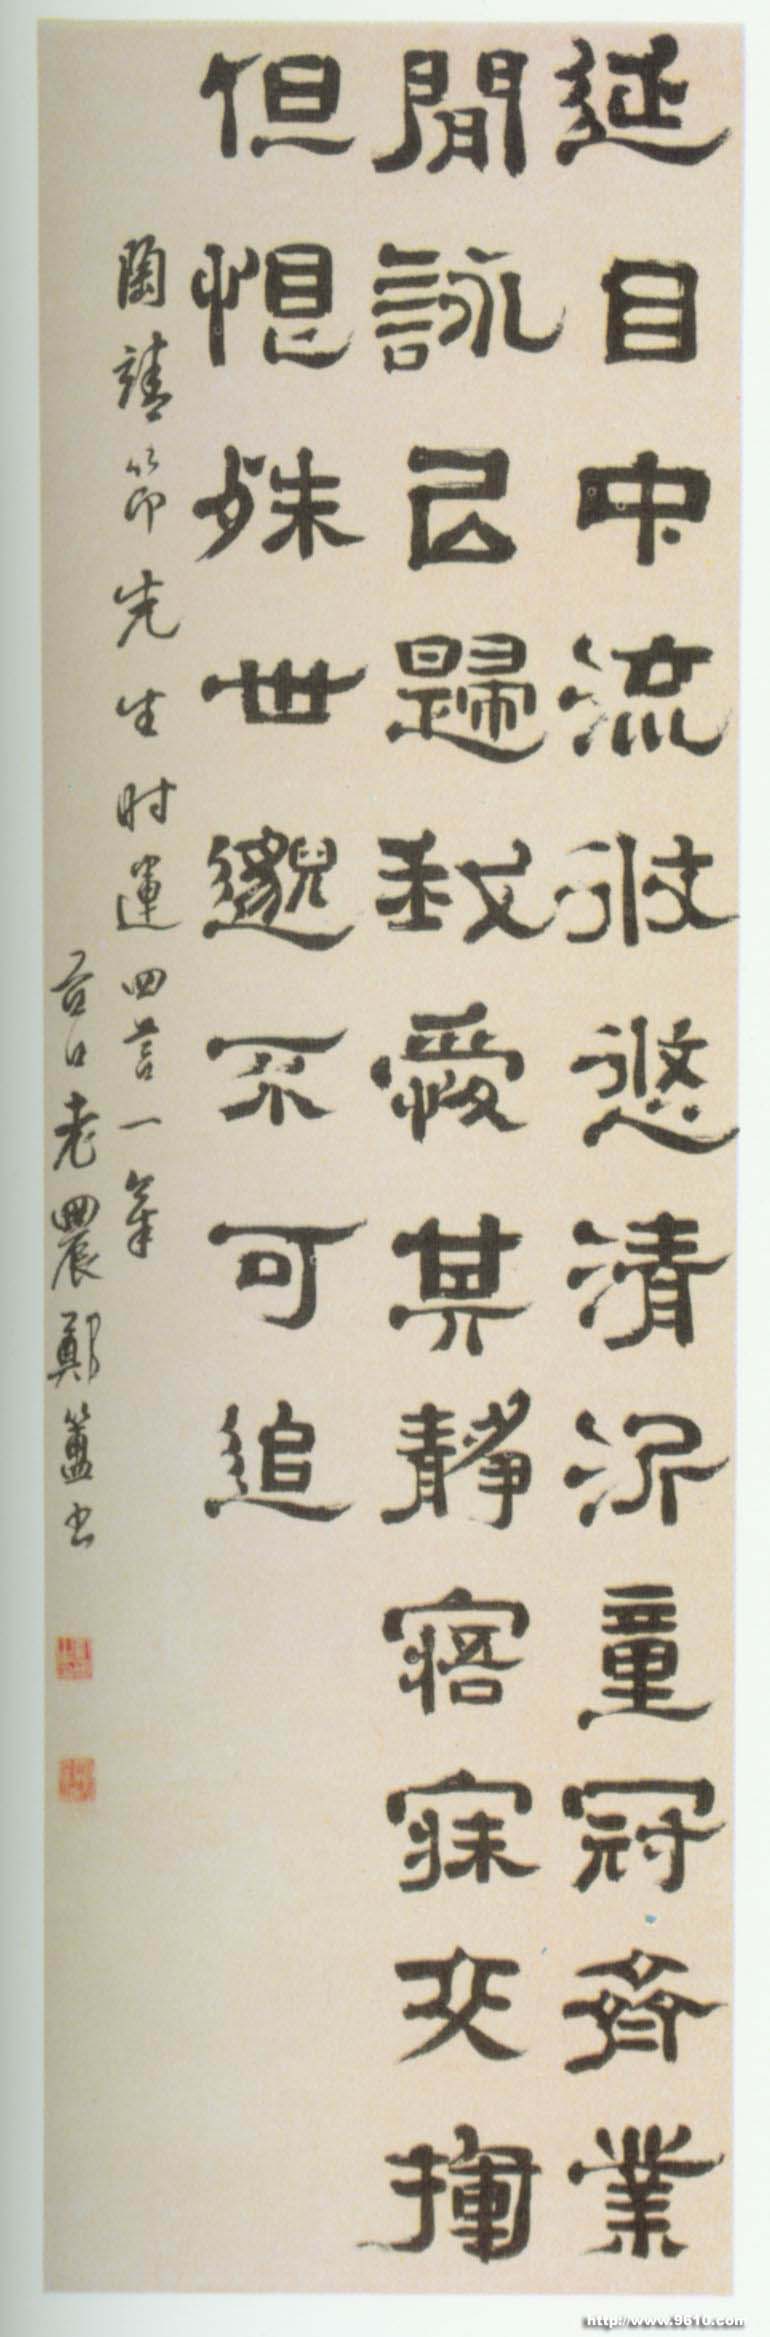 延目中流攸悠清沂童冠齊業
閒詠㠯歸我愛其靜寤寐交揮
但恨殊世邈不可追
陶靖節先生时運四言一章
谷口老農鄭簠书
http://www.9610.com